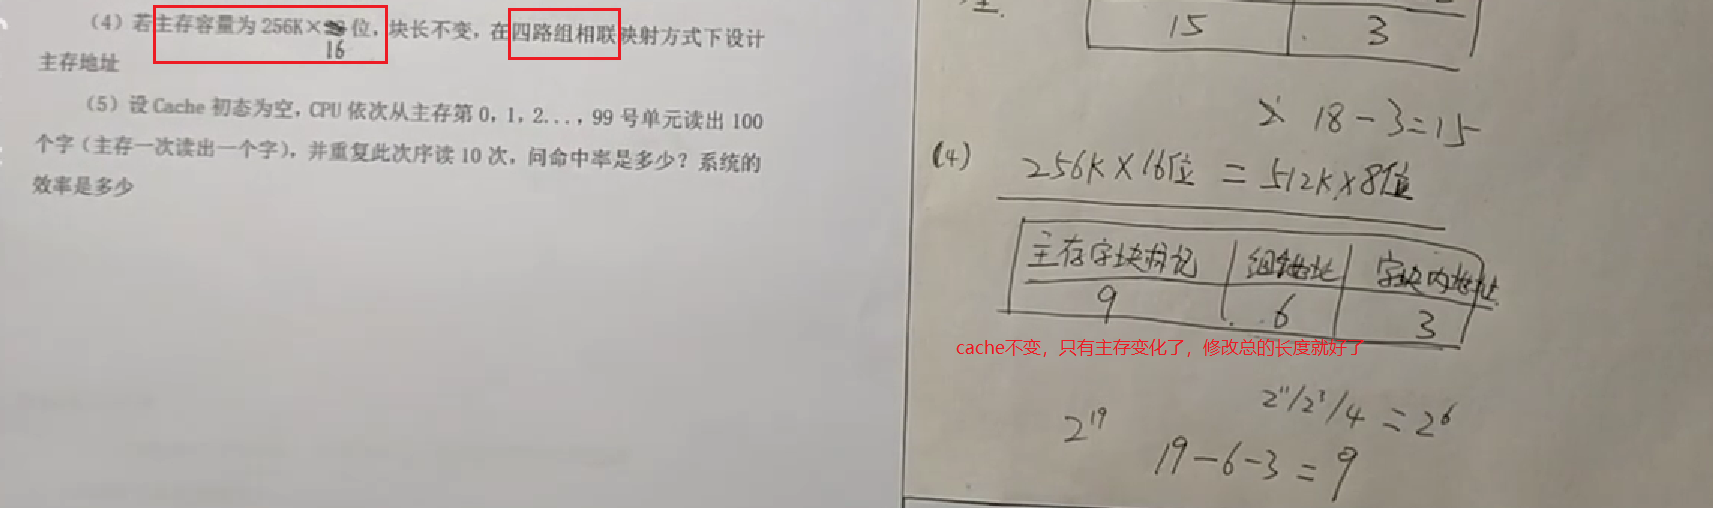 (4) 若主存容量为 256K×位，块长不变，在四路组相联映射方式下设计
16
主存地址
(5) 设 Cache 初态为空，CPU 依次从主存第 0，1，2...，99 号单元读出 100
个字（主存一次读出一个字），并重复此次序读 10 次，问命中率是多少？系统的
效率是多少
15 3
18-3=15
(4) 256K×16位 = 512K×8位
主存字块标记 组地址 字块内地址
9 6 3
cache不变，只有主存变化了，修改总的长度就好了
2^11/2^3/4 = 2^6
2^19
19-6-3=9